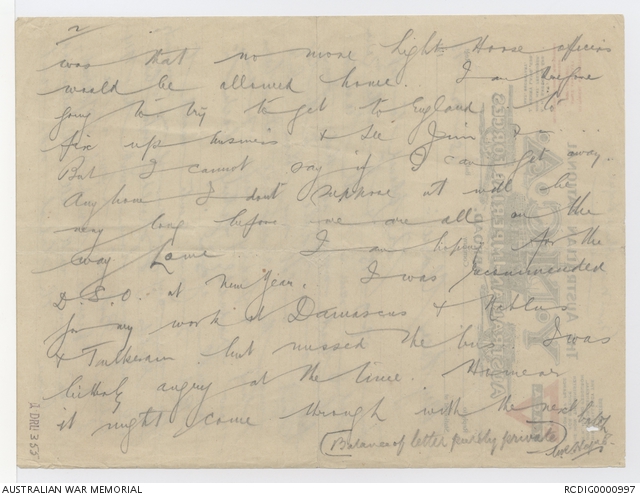 2
was that no more Light Horse officers
would be allowed home. I am therefore
going to try to get to England to
fix up business & see Jim
But I cannot say if I can get away.
Anyhow I dont suppose it will be
very long before we are all on the
way home. I am hoping for the
D.S.O. at New Year. I was recommended
for my work at Damascus &
& Tulkeram but missed the bus. I was
bitterly angry at the time. However
it might come through with the next batch
(Balance of letter purely private)
1 DRL 353
AUSTRALIAN WAR MEMORIAL
RCDIG0000997